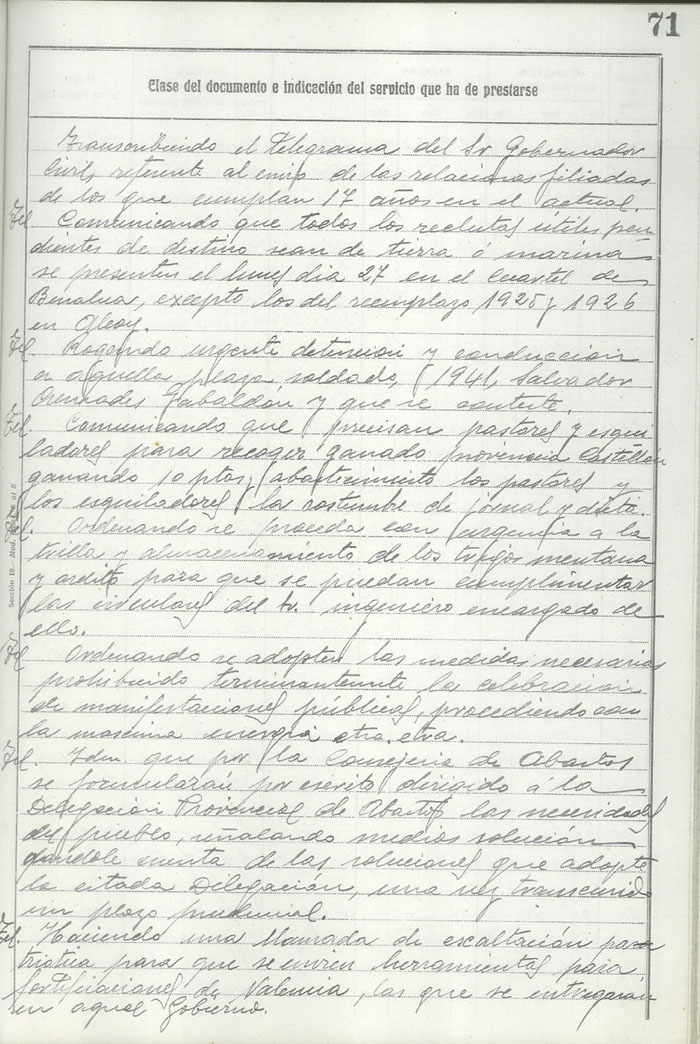 71
Clase del documento e indicación del servicio que ha de prestarse
Transcribiendo el telegrama del Sr Gobernador
Civil, referente al envio de las relaciones filiadas
de los que cumplan 17 años en el actual.
Tel Comunicando que todos los reclutas útiles pen
dientes de destino sean de tierra ó marina
se presenten el lunes dia 27 en el Cuartel de
Benalua, excepto los del reemplazo 1925 y 1926
en Alcoy.
Tel. Rogando urgente detencion y conduccion
a aquella plaza soldado, (1941, Salvador
Tabaldon y que se conteste.
Tel. Comunicando que precisan pastores y esqui
ladores para recoger ganado provincia Castellón
ganando 10 ptas, abastecimiento los pastores y
los esquiladores la costumbre de jornal y dieta.
Ordenando se proceda con urgencia a la
trilla y almacenamiento de los trigos mentana
y ardito para que se puedan cumplimentar
las circulares del Sr. ingeniero encargado de
ello.
Tel Ordenando se adopten las medidas necesarias
prohibiendo terminantemente la celebracion
de manifestaciones públicas, procediendo con
la maxima energia etra. etra.
Tel. Idm. que por la Consejeria de Abastos
se formularán por escrito dirigido á la
Delegación Provincial de Abastos las necesidades
del pueblo, señalando medios solución
dandole cuenta de las soluciones que adopte
la citada Delegación, una vez transcurrido
un plazo prudencial.
Tel. Haciendo una llamada de exaltación pa
triotica para que se envien herramientas para
fortificaciones de Valencia, las que se entregaran
en aquel Gobierno.
Sección 18.-Mod.